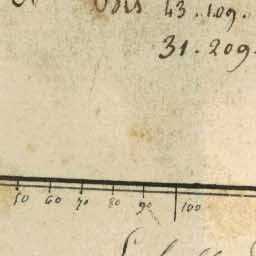 43.109.
31.209.
50 60 70 80 90 100